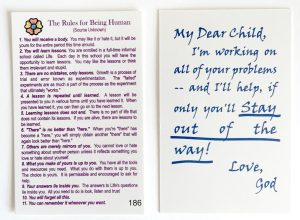 The Rules for Being Human
(Source Unknown)
1. You will receive a body. You may like it or hate it, but it will be
yours for the entire period this time around.
2. You will learn lessons. You are enrolled in a full-time informal
school called Life. Each day in this school you will have the
opportunity to learn lessons. You may like the lessons or think
them irrelevant and stupid.
3. There are no mistakes, only lessons. Growth is a process of
trial and error known as experimentation. The "failed"
experiments are as much a part of the process as the experiment
that ultimately "works."
4. A lesson is repeated until learned. A lesson will be
presented to you in various forms until you have learned it. When
you have learned it, you can then go on to the next lesson.
5. Learning lessons does not end. There is no part of life that
does not contain its lessons. If you are alive, there are lessons to
be learned.
6. "There" is no better than "here." When you're "there" has
become a "here," you will simply obtain another "there" that will
again look better than "here."
7. Others are merely mirrors of you. You cannot love or hate
something about another person unless it reflects something you
love or hate about yourself.
8. What you make of yours is up to you. You have all the tools
and resources you need. What you do with them is up to you.
The choice is yours. It is permissible and encouraged to ask for
help.
9. Your answers lie inside you. The answers to Life's questions
lie inside you. All you need to do is look, listen and trust!
10. You will forget all this.
11. You can remember it whenever you want.
186
My Dear Child,
I'm working on
all of your problems
-- and I'll help, if
only you'll Stay
out of the
way!
Love,
God